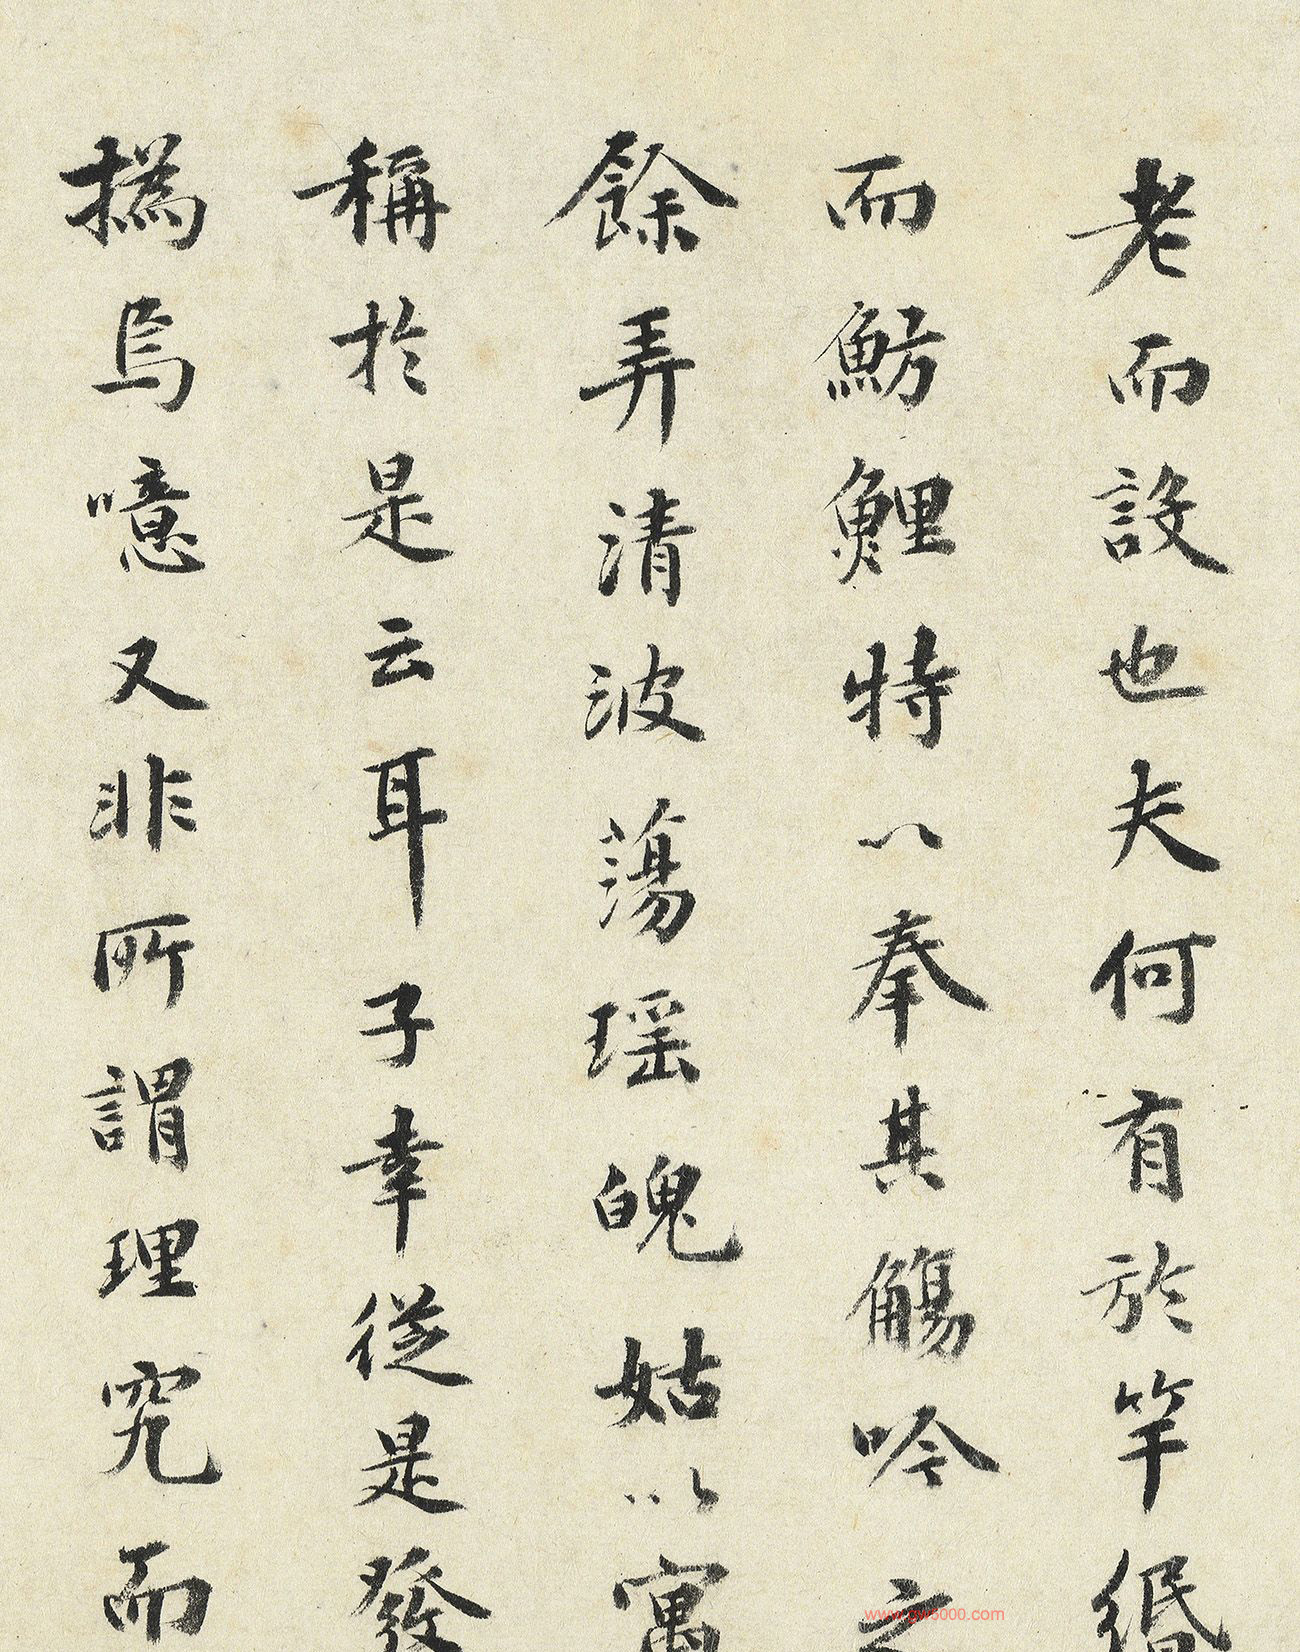 老而設也夫何有於竿緡
而魴鯉特以奉其觴吟之
餘弄清波蕩瑶魄姑以寓
稱於是云耳子幸從是發
撝焉噫又非所謂理究而
www.gw8000.com